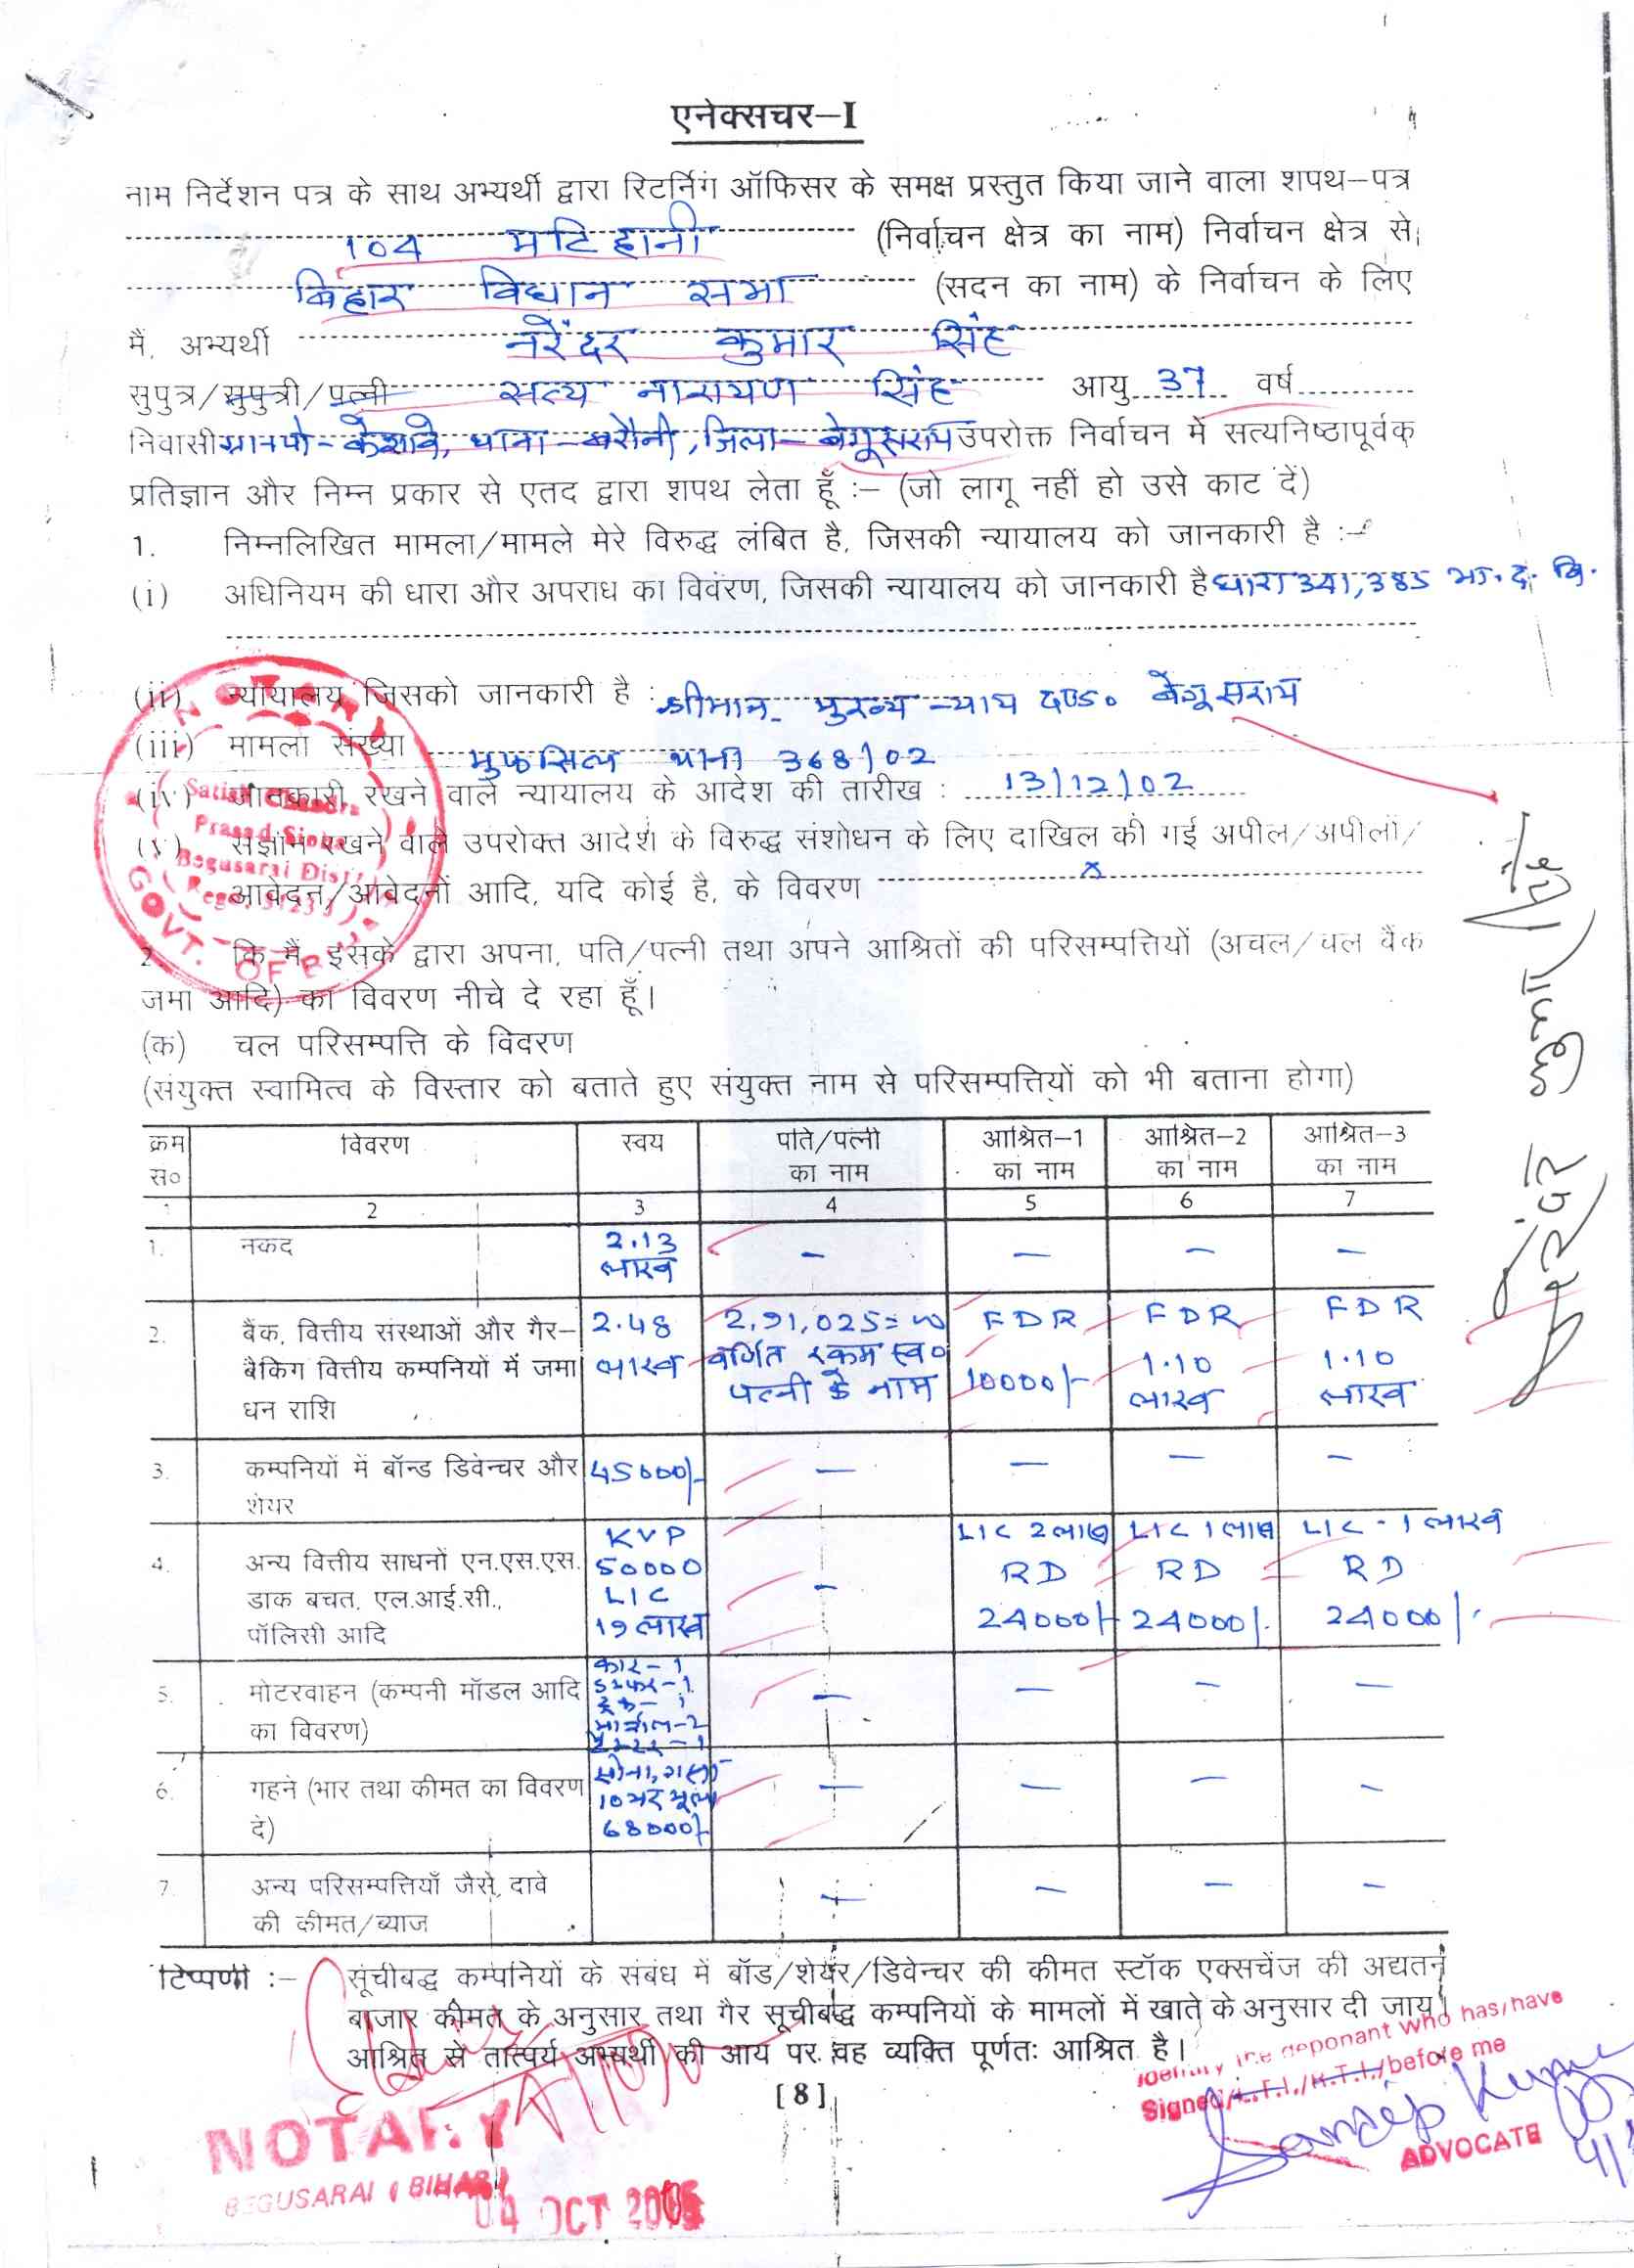 एनेक्सचर-I
नाम निर्देशन पत्र के साथ अभ्यर्थी द्वारा रिटर्निग ऑफिसर के समक्ष प्रस्तुत किया जाने वाला शपथ-पत्र
104 मटिहानी (निर्वाचन क्षेत्र का नाम) निर्वाचन क्षेत्र से
बिहार विधान सभा (सदन का नाम) के निर्वाचन के लिए
मैं, अभ्यर्थी नरेंद्दर कुमार सिंह
सुपुत्र/सुपुत्री/पत्नी सत्य नारायण सिंह आयु 37 वर्ष
निवासी केशावे, थाना-बरौनी, जिला-बेगूसराय उपरोक्त निर्वाचन में सत्यनिष्ठापूर्वक
प्रतिज्ञान और निम्न प्रकार से एतद द्वारा शपथ लेता हूँ :- (जो लागू नहीं हो उसे काट दें)
1. निम्नलिखित मामला/मामले मेरे विरुद्ध लंबित है, जिसकी न्यायालय को जानकारी है :-
(i) अधिनियम की धारा और अपराध का विवरण, जिसकी न्यायालय को जानकारी है धारा 341,385 भा.द.वि.
(ii) न्यायालय जिसको जानकारी है : श्रीमान मुख्य न्याय दण्ड० बेगूसराय
(iii) मामला संख्या मुफसिल थाना 368/02
(iv) जानकारी रखने वाले न्यायालय के आदेश की तारीख : 13/12/02
(v) रखने वाले उपरोक्त आदेश के विरुद्ध संशोधन के लिए दाखिल की गई अपील/अपीलों/
आवेदन/आवेदनों आदि, यदि कोई है, के विवरण x
2. कि मैं, इसके द्वारा अपना, पति/पत्नी तथा अपने आश्रितों की परिसम्पत्तियों (अचल/चल बैंक
जमा आदि) का विवरण नीचे दे रहा हूँ।
(क) चल परिसम्पत्ति के विवरण
(संयुक्त स्वामित्व के विस्तार को बताते हुए संयुक्त नाम से परिसम्पत्तियों को भी बताना होगा)
क्रम विवरण स्वय पति/पत्नी आश्रित-1 आश्रित-2 आश्रित-3
स० का नाम का नाम का नाम का नाम
1 2 3 4 5 6 7
1. नकद 2.13 - - - -
लाख
2. बैंक, वित्तीय संस्थाओं और गैर- 2.48 2,91,025=00 FDR FDR FDR
बैकिग वित्तीय कम्पनियों में जमा लाख वर्णित रकम स्व० 10000/- 1.10 1.10
धन राशि पत्नी के नाम लाख लाख
3. कम्पनियों में बॉन्ड डिवेन्चर और 45000/- - - - -
शेयर
KVP LIC 2 लाख LIC 1 लाख LIC - 1 लाख
4. अन्य वित्तीय साधनों एन.एस.एस. 50000 - RD RD RD
डाक बचत, एल.आई.सी., LIC 24000/- 24000/- 24000/-
पॉलिसी आदि 19 लाख
कार-1
5. मोटरवाहन (कम्पनी मॉडल आदि - - - -
का विवरण)
सोना,
6. गहने (भार तथा कीमत का विवरण 10 भर मूल्य - - - -
दे) 68000/-
7. अन्य परिसम्पत्तियाँ जैसे, दावे - - - -
की कीमत/ब्याज
टिप्पणी :- सूंचीबद्ध कम्पनियों के संबंध में बॉड/शेयर/डिवेन्चर की कीमत स्टॉक एक्सचेंज की अद्यतन
बाजार कीमत के अनुसार तथा गैर सूचीबद्ध कम्पनियों के मामलों में खाते के अनुसार दी जाय।
आश्रित से तात्पर्य अभ्यर्थी की आय पर वह व्यक्ति पूर्णतः आश्रित है।
[8]
NOTARY
Satish Chandra
Prasad Sinha
Begusarai Distt.
GOVT. OF
नरेंद्दर कुमार सिंह
NOTARY
BEGUSARAI (BIHAR)
04 OCT 2005
Identify the deponant who has/have
Signed/L.T.I./R.T.I./before me
Sandeep Kumar
ADVOCATE